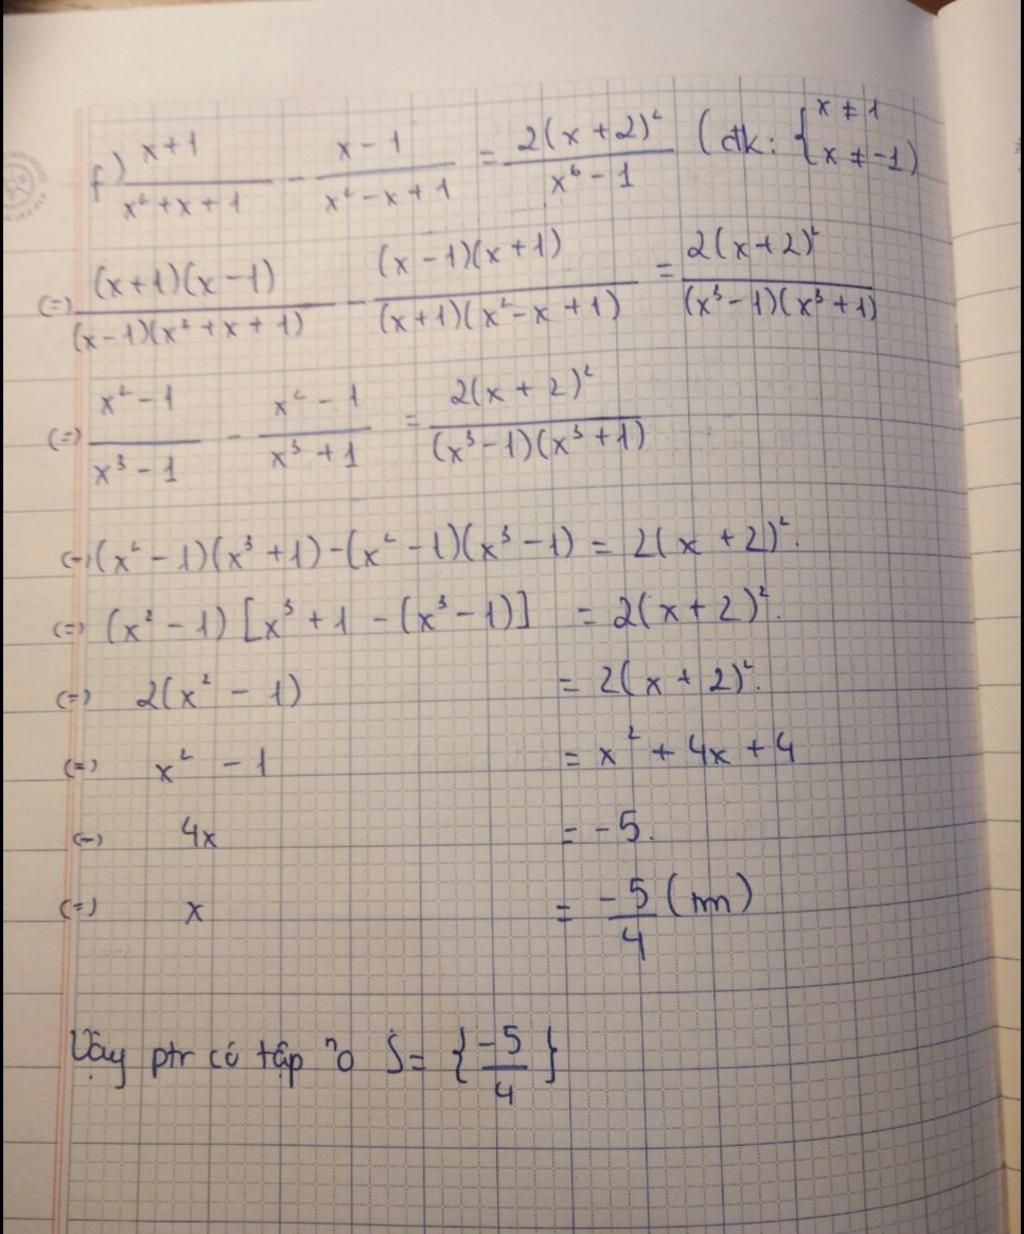 f) \frac{x+1}{x²+x+1} - \frac{x-1}{x²-x+1} = \frac{2(x+2)²}{x⁶-1} (đk: { x ≠ 1 x ≠ -1)
(=) \frac{(x+1)(x-1)}{(x-1)(x²+x+1)} - \frac{(x-1)(x+1)}{(x+1)(x²-x+1)} = \frac{2(x+2)²}{(x³-1)(x³+1)}
(=) \frac{x²-1}{x³-1} - \frac{x²-1}{x³+1} = \frac{2(x+2)²}{(x³-1)(x³+1)}
(=) (x²-1)(x³+1)-(x²-1)(x³-1) = 2(x+2)².
(=) (x²-1)[x³+1-(x³-1)] = 2(x+2)².
(=) 2(x²-1) = 2(x+2)².
(=) x²-1 = x²+4x+4
(=) 4x = -5.
(=) x = \frac{-5}{4} (nm)
Vậy ptr có tập no S= {\frac{-5}{4}}